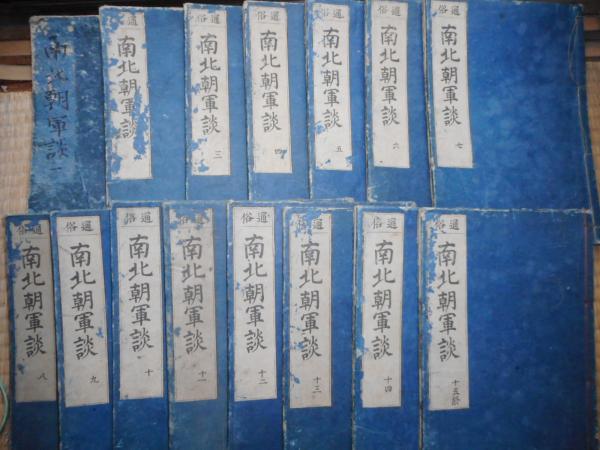 南北朝軍談一
通俗
南北朝軍談
通俗
南北朝軍談
三
通俗
南北朝軍談
四
通俗
南北朝軍談
五
通俗
南北朝軍談
六
通俗
南北朝軍談
七
通俗
南北朝軍談
八
通俗
南北朝軍談
九
通俗
南北朝軍談
十
通俗
南北朝軍談
十一
通俗
南北朝軍談
十二
通俗
南北朝軍談
十三
通俗
南北朝軍談
十四
通俗
南北朝軍談
十五終